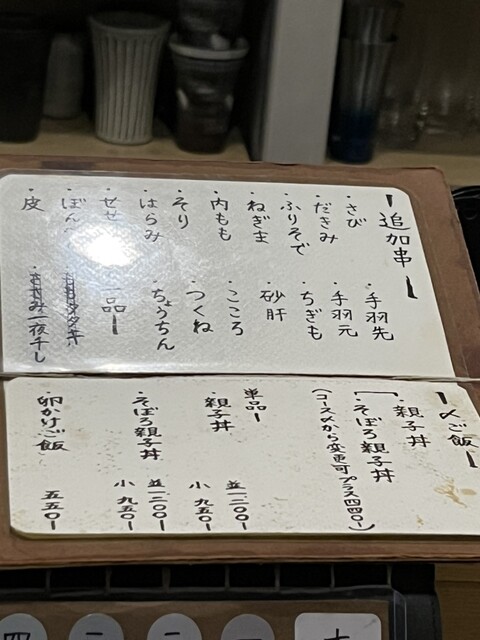 追加串
・さび
・だきみ
・ふりそで
・ねぎま
・内もも
・そり
・はらみ
・せせ
・ぼん
・皮
・手羽先
・手羽元
・ちぎも
・砂肝
・こころ
・つくね
・ちょうちん
一品
み一夜干し
〆ご飯
・親子丼
・そぼろ親子丼
(コース〆から変更可プラス四四〇-)
単品
・親子丼
並一二〇〇
小九五〇
・そぼろ親子丼
並一二〇〇
小九五〇
・卵かけご飯
五五〇